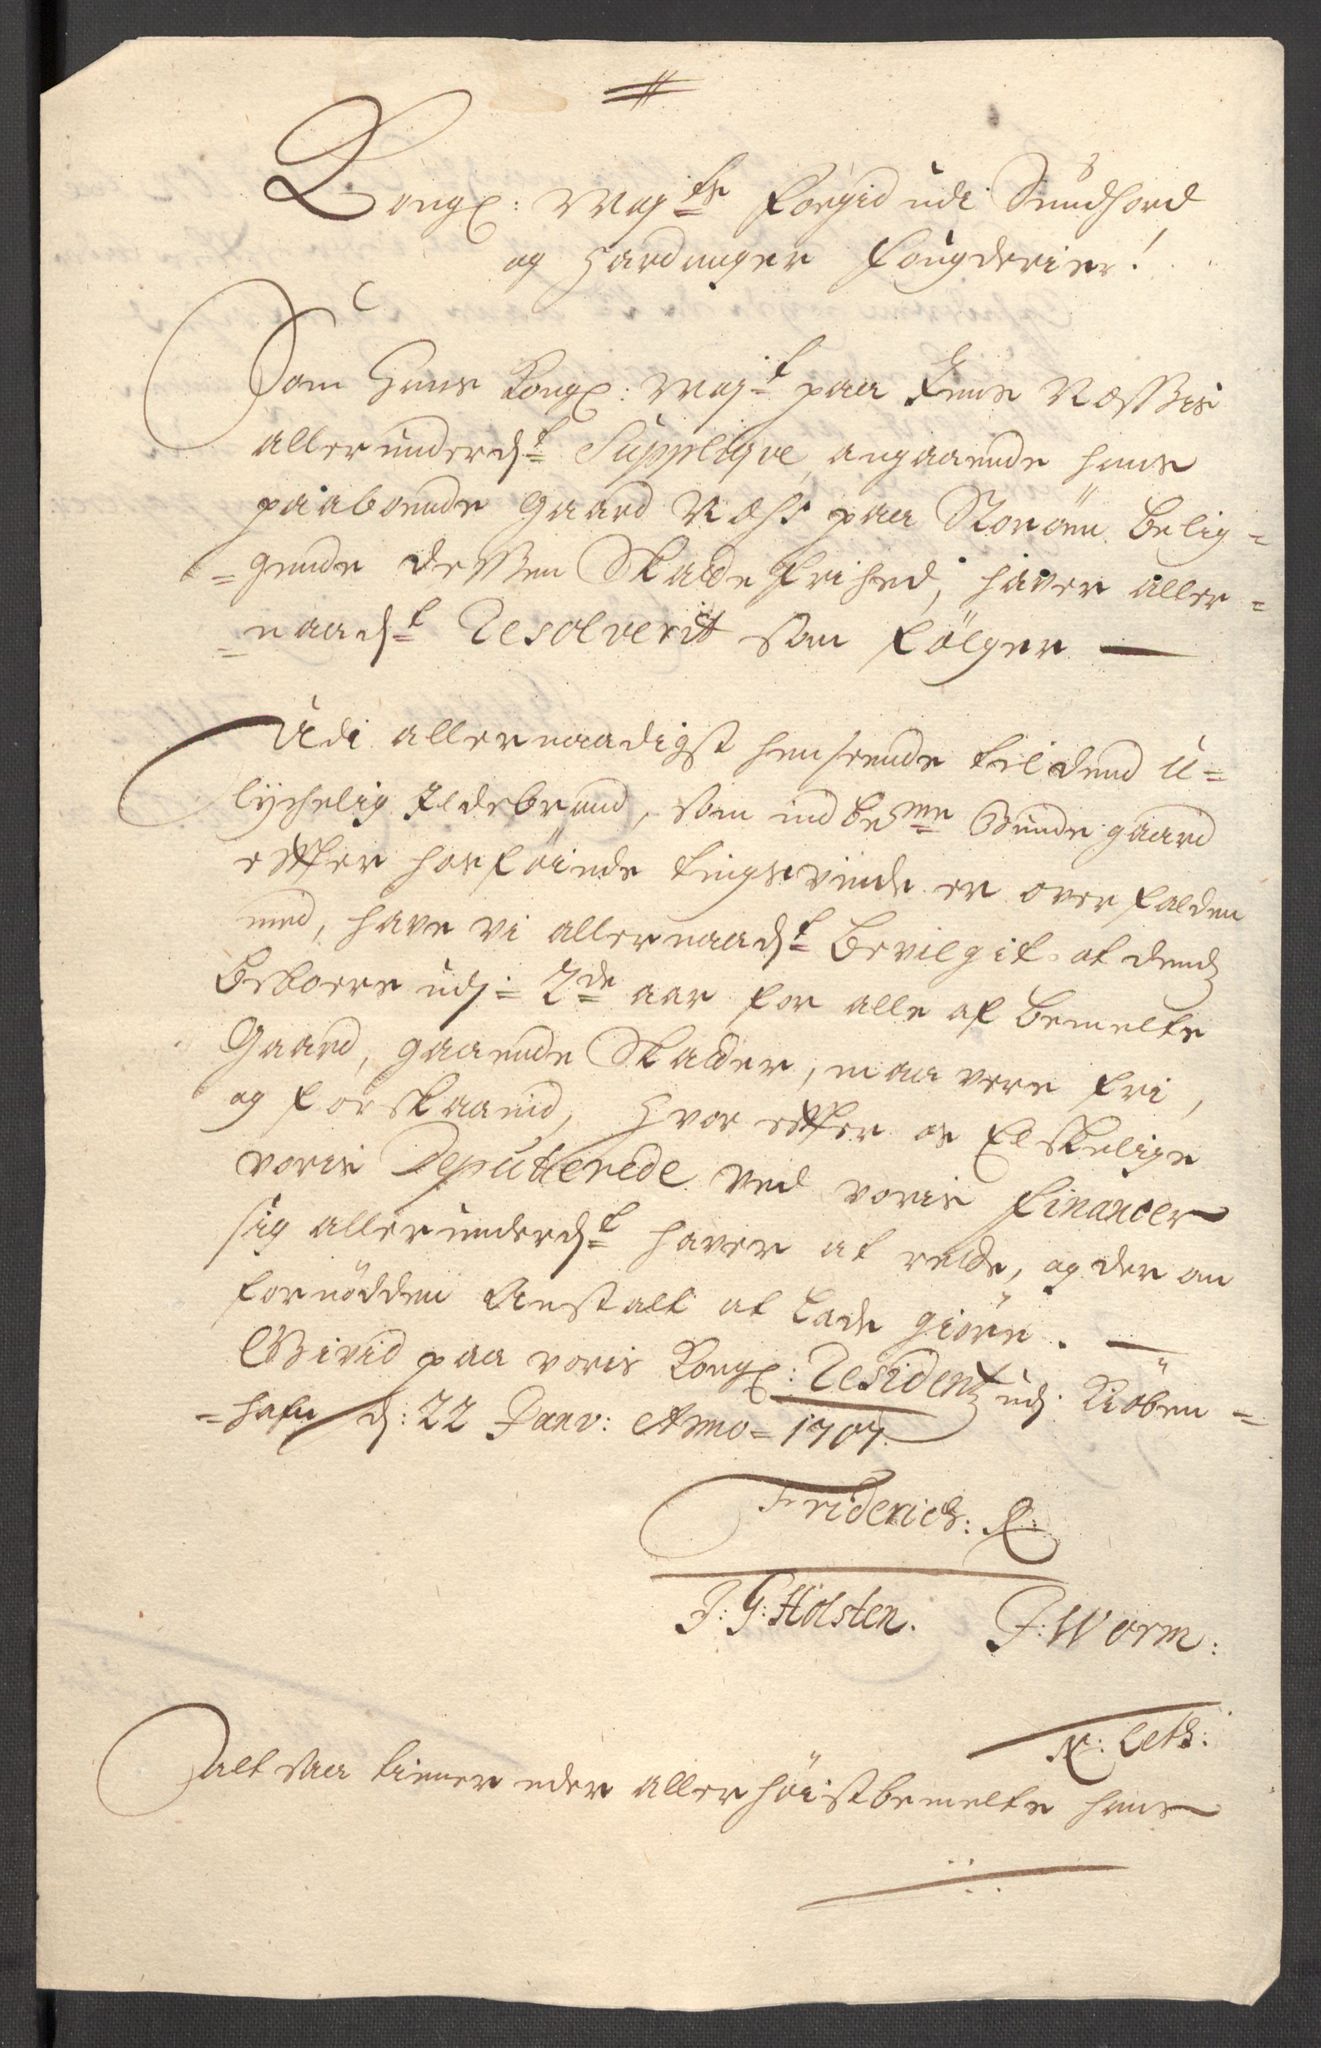 Kongl: Maj:ts Foegid udi Sundhord
og Hardanger Fougderier!
Som Hans Kongl: Maj:t paa Jens Næssis
allerunderd:t Supplique, angaaende hans
paaboende Gaard Næss paa Storöen belig=
=gende dessen Skatte Frihed, haver aller=
=naad:t Resolverit som Fölger —
Udi allernaadigst henseende til dend u=
lychelig Ildebrand, som ind be:me Bunde gaard
effter hosföiede tingsvinde er over falden
med, have vi allernaad:t bevilgit at dends
beboere udj 2de aar for alle af bemelte
Gaard, gaaende Skatter, maa vere fri,
og forskaanid, Hvor effter os Elskelige
voris Deputerede ved voris Financer
sig allerunderd:t haver at rette, og der om
fornödden Anstalt at lade giöre. —
Givid paa voris Kongl: Residentz udj Kiöben=
=hafn d: 22 Janv: Anno 1707.
Friderich: R:
J: G: Holsten. F: Worm:
alt saa tiener eder allerhöistbemelte hans